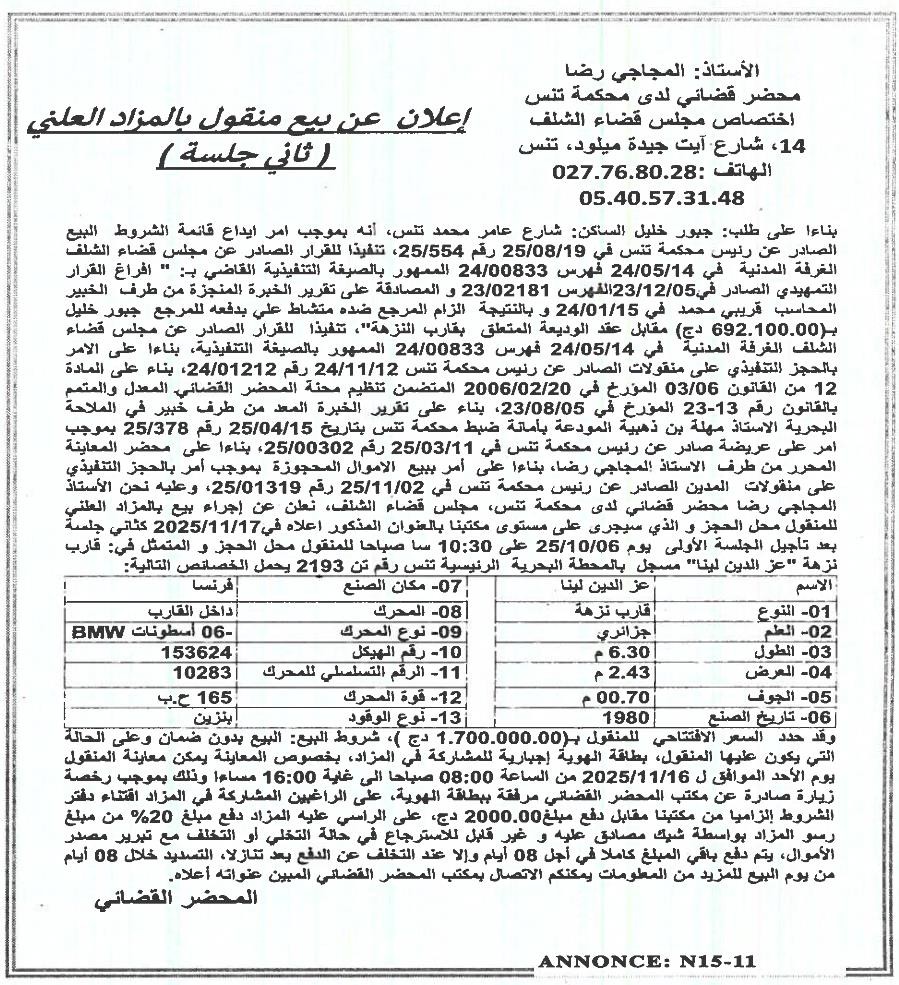 الأستاذ: المجاجي رضا
محضر قضائي لدى محكمة تنس
اختصاص مجلس قضاء الشلف
14، شارع آيت جيدة ميلود، تنس
الهاتف :027.76.80.28
05.40.57.31.48
إعلان عن بيع منقول بالمزاد العلني
( ثاني جلسة )
بناءا على طلب: جبور خليل الساكن: شارع عامر محمد تنس، أنه بموجب امر ايداع قائمة الشروط البيع
الصادر عن رئيس محكمة تنس في 25/08/19 رقم 25/554، تنفيذا للقرار الصادر عن مجلس قضاء الشلف
الغرفة المدنية في 24/05/14 فهرس 24/00833 الممهور بالصيغة التنفيذية القاضي بـ: " افراغ القرار
التمهيدي الصادر في23/12/05الفهرس 23/02181 و المصادقة على تقرير الخبرة المنجزة من طرف الخبير
المحاسب قريبي محمد في 24/01/15 و بالنتيجة الزام المرجع ضده متشاط علي بدفعه للمرجع جبور خليل
بـ(692.100.00 دج) مقابل عقد الوديعة المتعلق بقارب النزهة"، تنفيذا للقرار الصادر عن مجلس قضاء
الشلف الغرفة المدنية في 24/05/14 فهرس 24/00833 الممهور بالصيغة التنفيذية، بناءا على الامر
بالحجز التنفيذي على منقولات الصادر عن رئيس محكمة تنس 24/11/12 رقم 24/01212، بناء على المادة
12 من القانون 03/06 المؤرخ في 2006/02/20 المتضمن تنظيم مهنة المحضر القضائي المعدل والمتمم
بالقانون رقم 13-23 المؤرخ في 23/08/05، بناء على تقرير الخبرة المعد من طرف خبير في الملاحة
البحرية الاستاذ مهلة بن ذهيبة المودعة بأمانة ضبط محكمة تنس بتاريخ 25/04/15 رقم 25/378 بموجب
امر على عريضة صادر عن رئيس محكمة تنس في 25/03/11 رقم 25/00302، بناءا على محضر المعاينة
المحرر من طرف الاستاذ المجاجي رضا، بناءا على أمر ببيع الاموال المحجوزة بموجب أمر بالحجز التنفيذي
على منقولات المدين الصادر عن رئيس محكمة تنس في 25/11/02 رقم 25/01319، وعليه نحن الأستاذ
المجاجي رضا محضر قضائي لدى محكمة تنس، مجلس قضاء الشلف، نعلن عن إجراء بيع بالمزاد العلني
للمنقول محل الحجز و الذي سيجرى على مستوى مكتبنا بالعنوان المذكور اعلاه في2025/11/17 كثاني جلسة
بعد تأجيل الجلسة الأولى يوم 25/10/06 على 10:30 سا صباحا للمنقول محل الحجز و المتمثل في: قارب
نزهة "عز الدين لينا" مسجل بالمحطة البحرية الرئيسية تنس رقم تن 2193 يحمل الخصائص التالية:
الاسم عز الدين لينا 07- مكان الصنع فرنسا
01- النوع قارب نزهة 08- المحرك داخل القارب
02- العلم جزائري 09- نوع المحرك -06 أسطونات BMW
03- الطول 6.30 م 10- رقم الهيكل 153624
04- العرض 2.43 م 11- الرقم التسلسلي للمحرك 10283
05- الجوف 00.70 م 12- قوة المحرك 165 ح.ب
06- تاريخ الصنع 1980 13- نوع الوقود بنزين
وقد حدد السعر الافتتاحي للمنقول بـ(1.700.000.00 دج )، شروط البيع: البيع بدون ضمان وعلى الحالة
التي يكون عليها المنقول، بطاقة الهوية إجبارية للمشاركة في المزاد، بخصوص المعاينة يمكن معاينة المنقول
يوم الأحد الموافق ل 2025/11/16 من الساعة 08:00 صباحا الى غاية 16:00 مساءا وذلك بموجب رخصة
زيارة صادرة عن مكتب المحضر القضائي مرفقة ببطاقة الهوية، على الراغبين المشاركة في المزاد اقتناء دفتر
الشروط إلزاميا من مكتبنا مقابل دفع مبلغ2000.00 دج، على الراسي عليه المزاد دفع مبلغ 20% من مبلغ
رسو المزاد بواسطة شيك مصادق عليه و غير قابل للاسترجاع في حالة التخلي أو التخلف مع تبرير مصدر
الأموال، يتم دفع باقي المبلغ كاملا في أجل 08 أيام وإلا عند التخلف عن الدفع يعد تنازلا، التسديد خلال 08 أيام
من يوم البيع للمزيد من المعلومات يمكنكم الاتصال بمكتب المحضر القضائي المبين عنوانه أعلاه.
المحضر القضائي
ANNONCE: N15-11